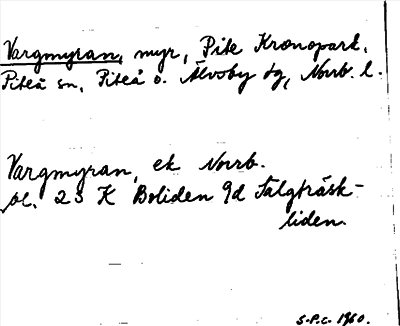 Vargmyran, myr, Pite Kronopark,
Piteå sn, Piteå o. Älvsby tg, Norrb. l.
Vargmyran, ek Norrb.
bl. 23 K Boliden 9d Talgträsk-
liden.
S.P.C. 1960.